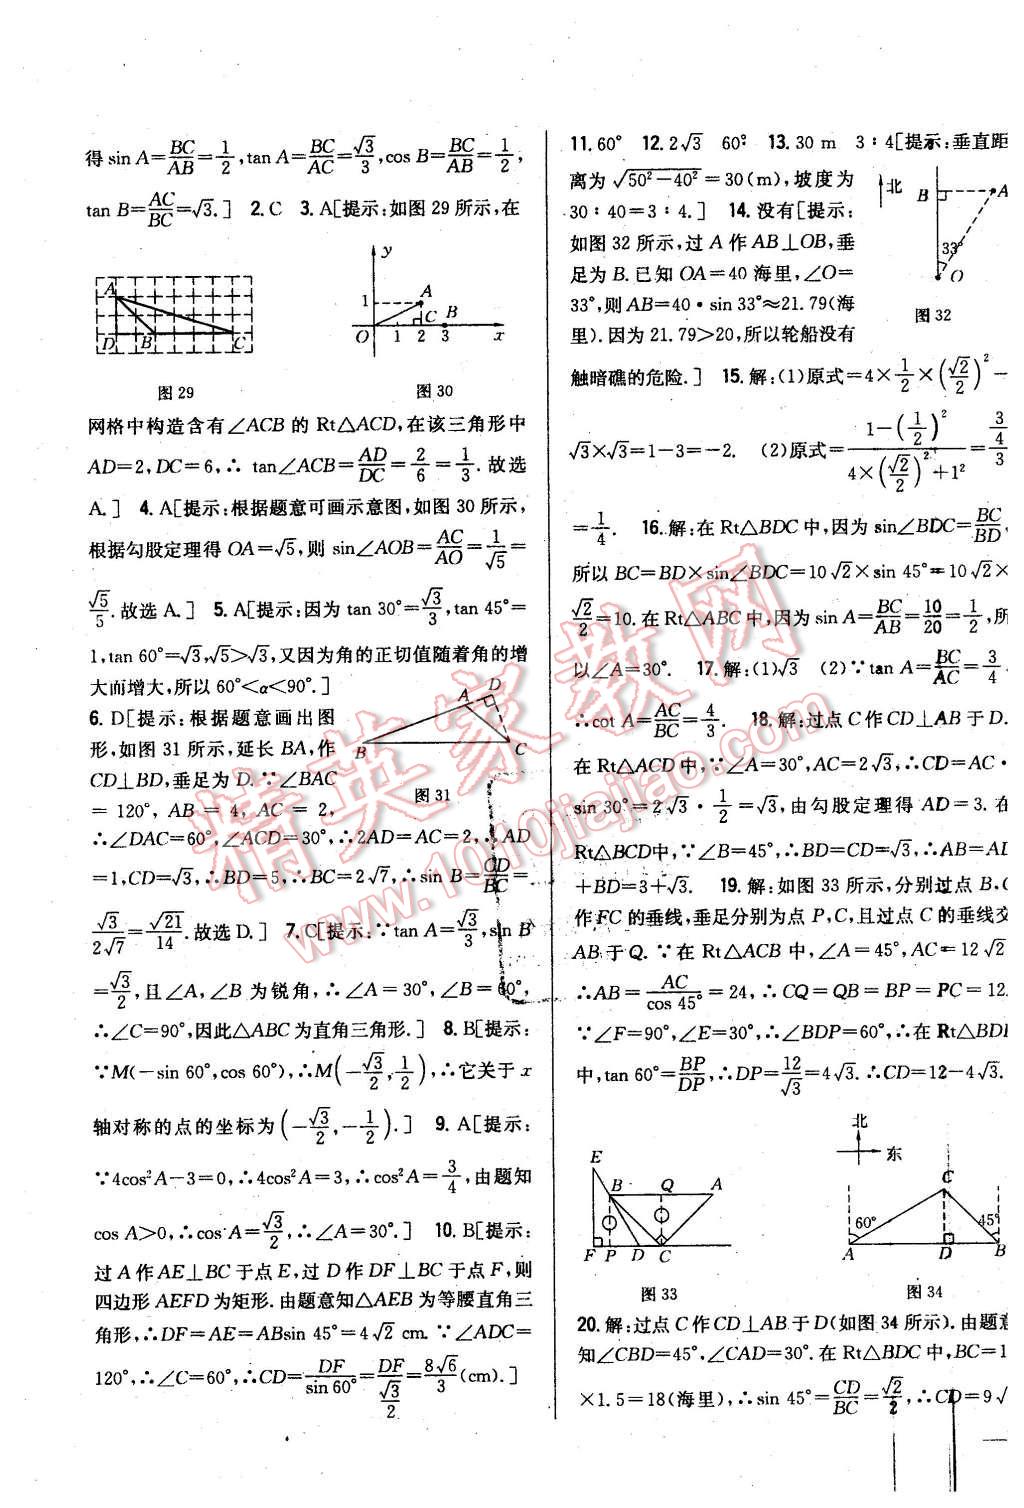 得 sin A=BC/AB=1/2, tan A=BC/AC=√3/3, cos B=BC/AB=1/2,
tan B=AC/BC=√3.] 2.C 3.A[提示:如图 29 所示,在
A
D B C
图 29
y
1 A
C B
O 1 2 3 x
图 30
网格中构造含有∠ACB 的 Rt△ACD,在该三角形中
AD=2,DC=6,∴ tan∠ACB=AD/DC=2/6=1/3.故选
A.] 4.A[提示:根据题意可画示意图,如图 30 所示,
根据勾股定理得 OA=√5,则 sin∠AOB=AC/AO=1/√5=
√5/5.故选 A.] 5.A[提示:因为 tan 30°=√3/3,tan 45°=
1,tan 60°=√3,√5>√3,又因为角的正切值随着角的增
大而增大,所以 60°<α<90°.]
6.D[提示:根据题意画出图
形,如图 31 所示,延长 BA,作
CD⊥BD,垂足为 D.∵∠BAC
= 120°, AB = 4, AC = 2,
A D
B C
图 31
∴∠DAC=60°,∠ACD=30°,∴2AD=AC=2,∴AD
=1,CD=√3,∴BD=5,∴BC=2√7,∴sin B=CD/BC=
√3/2√7=√21/14.故选 D.] 7.C[提示:∵tan A=√3/3,sin B
=√3/2,且∠A,∠B 为锐角,∴∠A=30°,∠B=60°,
∴∠C=90°,因此△ABC 为直角三角形.] 8.B[提示:
∵M(-sin 60°,cos 60°),∴M(-√3/2,1/2),∴它关于 x
轴对称的点的坐标为(-√3/2,-1/2).] 9.A[提示:
∵4cos²A-3=0,∴4cos²A=3,∴cos²A=3/4,由题知
cos A>0,∴cos A=√3/2,∴∠A=30°.] 10.B[提示:
过 A 作 AE⊥BC 于点 E,过 D 作 DF⊥BC 于点 F,则
四边形 AEFD 为矩形.由题意知△AEB 为等腰直角三
角形,∴DF=AE=ABsin 45°=4√2 cm.∵∠ADC=
120°,∴∠C=60°,∴CD=DF/sin 60°=DF/(√3/2)=8√6/3(cm).]
11.60° 12.2√3 60° 13.30 m 3∶4[提示:垂直距
离为√50²-40²=30(m),坡度为
30∶40=3∶4.] 14.没有[提示:
如图 32 所示,过 A 作 AB⊥OB,垂
足为 B.已知 OA=40 海里,∠O=
33°,则 AB=40·sin 33°≈21.79(海
里).因为 21.79>20,所以轮船没有
北
B A
33°
O
图 32
触暗礁的危险.] 15.解:(1)原式=4×1/2×(√2/2)²-
√3×√3=1-3=-2. (2)原式=(1-(1/2)²)/(4×(√2/2)²+1²)=(3/4)/3
=1/4. 16.解:在 Rt△BDC 中,因为 sin∠BDC=BC/BD,
所以 BC=BD×sin∠BDC=10√2×sin 45°=10√2×
√2/2=10.在 Rt△ABC 中,因为 sin A=BC/AB=10/20=1/2,所
以∠A=30°. 17.解:(1)√3 (2)∵tan A=BC/AC=3/4
∴cot A=AC/BC=4/3. 18.解:过点 C 作 CD⊥AB 于 D.
在 Rt△ACD 中,∵∠A=30°,AC=2√3,∴CD=AC·
sin 30°=2√3·1/2=√3,由勾股定理得 AD=3.在
Rt△BCD中,∵∠B=45°,∴BD=CD=√3,∴AB=AD
+BD=3+√3. 19.解:如图 33 所示,分别过点 B,C
作 FC 的垂线,垂足分别为点 P,C,且过点 C 的垂线交
AB 于 Q.∵在 Rt△ACB 中,∠A=45°,AC=12√2
∴AB=AC/cos 45°=24,∴CQ=QB=BP=PC=12.
∵∠F=90°,∠E=30°,∴∠BDP=60°,∴在 Rt△BDP
中,tan 60°=BP/DP,∴DP=12/√3=4√3.∴CD=12-4√3.
E
B Q A
F P D C
图 33
北
东
C
60° 45°
A D B
图 34
20.解:过点 C 作 CD⊥AB 于 D(如图 34 所示).由题意
知∠CBD=45°,∠CAD=30°.在 Rt△BDC 中,BC=1
×1.5=18(海里),∴sin 45°=CD/BC=√2/2,∴CD=9√
精英家教网
www.1010jiajiao.com